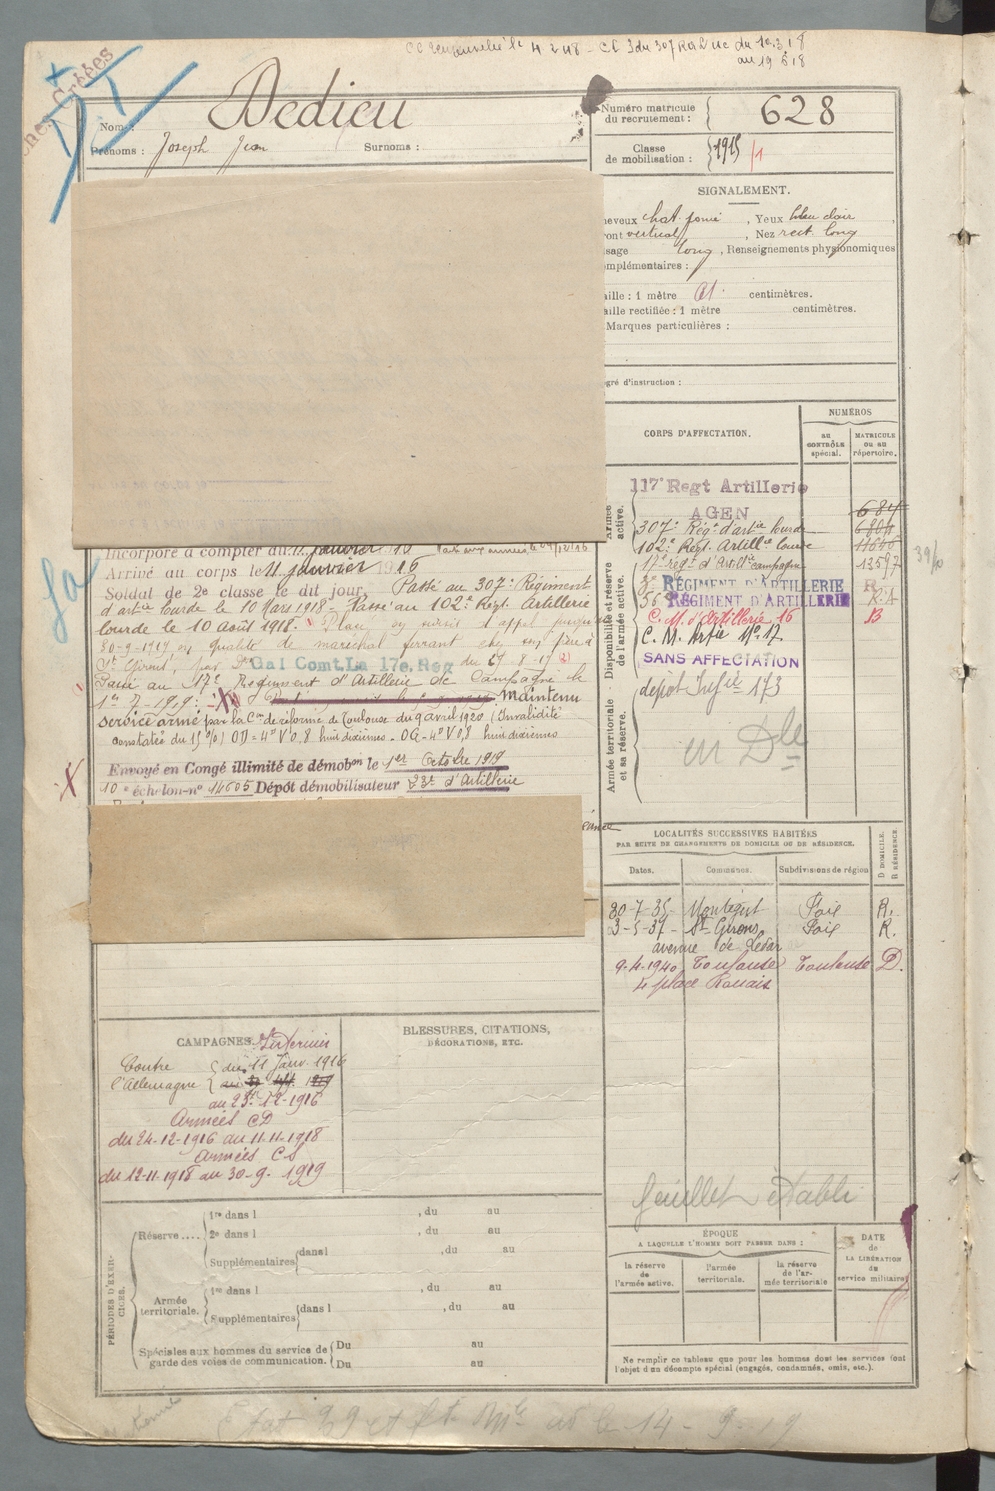 CC renouvelé le 4 2 48 - CC 3 du 307 RAL ac du 10.3.18
au 19 8 18
Nom : Dedieu
Prénoms : Joseph Jean Surnoms :
Numéro matricule du recrutement : 628
Classe de mobilisation : 1915
SIGNALEMENT.
heveux chat. foncé, Yeux bleu clair,
ront vertical, Nez rect. long
isage long, Renseignements physionomiques
omplémentaires :
aille : 1 mètre centimètres.
aille rectifiée : 1 mètre centimètres.
Marques particulières :
egré d'instruction :
CORPS D'AFFECTATION.
NUMÉROS
au CONTRÔLE spécial.
MATRICULE ou au répertoire.
Armée active.
Disponibilité et réserve de l'armée active.
Armée territoriale et sa réserve.
117e Regt Artillerie
AGEN 684
307e Rég. d'artie lourde
102e Régt. Artillie lourde
17e régt d'Artillie campagne 13597
3e RÉGIMENT D'ARTILLERIE R
56e RÉGIMENT D'ARTILLERIE
C. M. d'Artillerie 16 B
C. M. Artie No 17
SANS AFFECTATION
dépôt Infie 173
un Dle
Incorporé à compter du 11 janvier
Arrivé au corps le 11 janvier 1916
Soldat de 2e classe le dit jour. Passé au 307e Régiment
d'artie lourde le 10 Mars 1918 - Passé au 102e Régt Artillerie
lourde le 10 Août 1918. Placé en sursis d'appel jusqu'au
30-9-1919 en qualité de maréchal ferrant chez son père à
St Girons, par Dn Gal Comt. La 17e. Reg du
Passé au 17e Régiment d'Artillerie de Campagne le
1er 7-1919. Maintenu
service armé par la Con de réforme de Toulouse du 9 avril 1920 (Invalidité
constatée du 15 %) OD = 4° V 0,8 huit dixièmes - OG = 4° V 0,8 huit dixièmes
Envoyé en Congé illimité de démobon le 1er Octobre 1919
10e échelon - no 14605 Dépôt démobilisateur 23e d'Artillerie
LOCALITÉS SUCCESSIVES HABITÉES
PAR SUITE DE CHANGEMENTS DE DOMICILE OU DE RÉSIDENCE.
Dates. Communes. Subdivisions de région D DOMICILE. R RÉSIDENCE.
30-7-35 - Montégut Foix R.
3-5-37 - St Girons Foix R.
avenue de
9-4-1940 Toulouse Toulouse D.
4 place Rouaix
feuillet établi
CAMPAGNES. Intérieur
Contre l'Allemagne du 11 Janv. 1916
au 23-12-1916
Armées CD
du 24-12-1916 au 11-11-1918
Armées CS
du 12-11-1918 au 30-9-1919
BLESSURES, CITATIONS,
DÉCORATIONS, ETC.
PÉRIODES D'EXERCICES.
Réserve ....
1re dans l , du au
2e dans l , du au
Supplémentaires dans l , du au
Armée territoriale.
1re dans l , du au
Supplémentaires dans l , du au
Spéciales aux hommes du service de garde des voies de communication.
Du au
Du au
ÉPOQUE
A LAQUELLE L'HOMME DOIT PASSER DANS :
la réserve de l'armée active.
l'armée territoriale.
la réserve de l'armée territoriale
DATE de LA LIBÉRATION du service militaire
Ne remplir ce tableau que pour les hommes dont les services font
l'objet d'un décompte spécial (engagés, condamnés, omis, etc.).